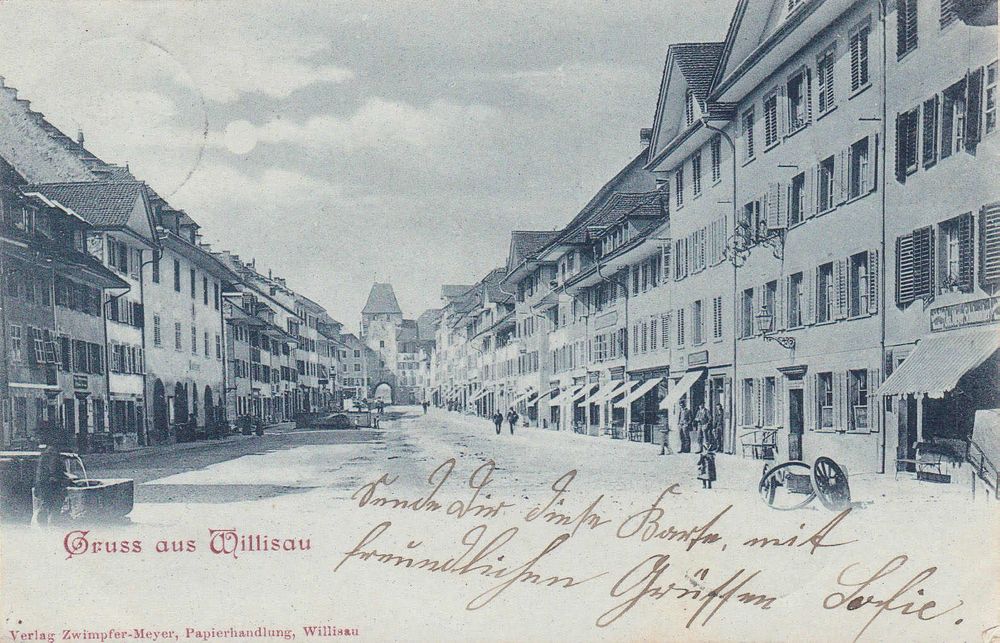 Sende Dir diese Karte, mit
freundlichen Grüssen Sofie.
Gruss aus Willisau
Verlag Zwimpfer-Meyer, Papierhandlung, Willisau